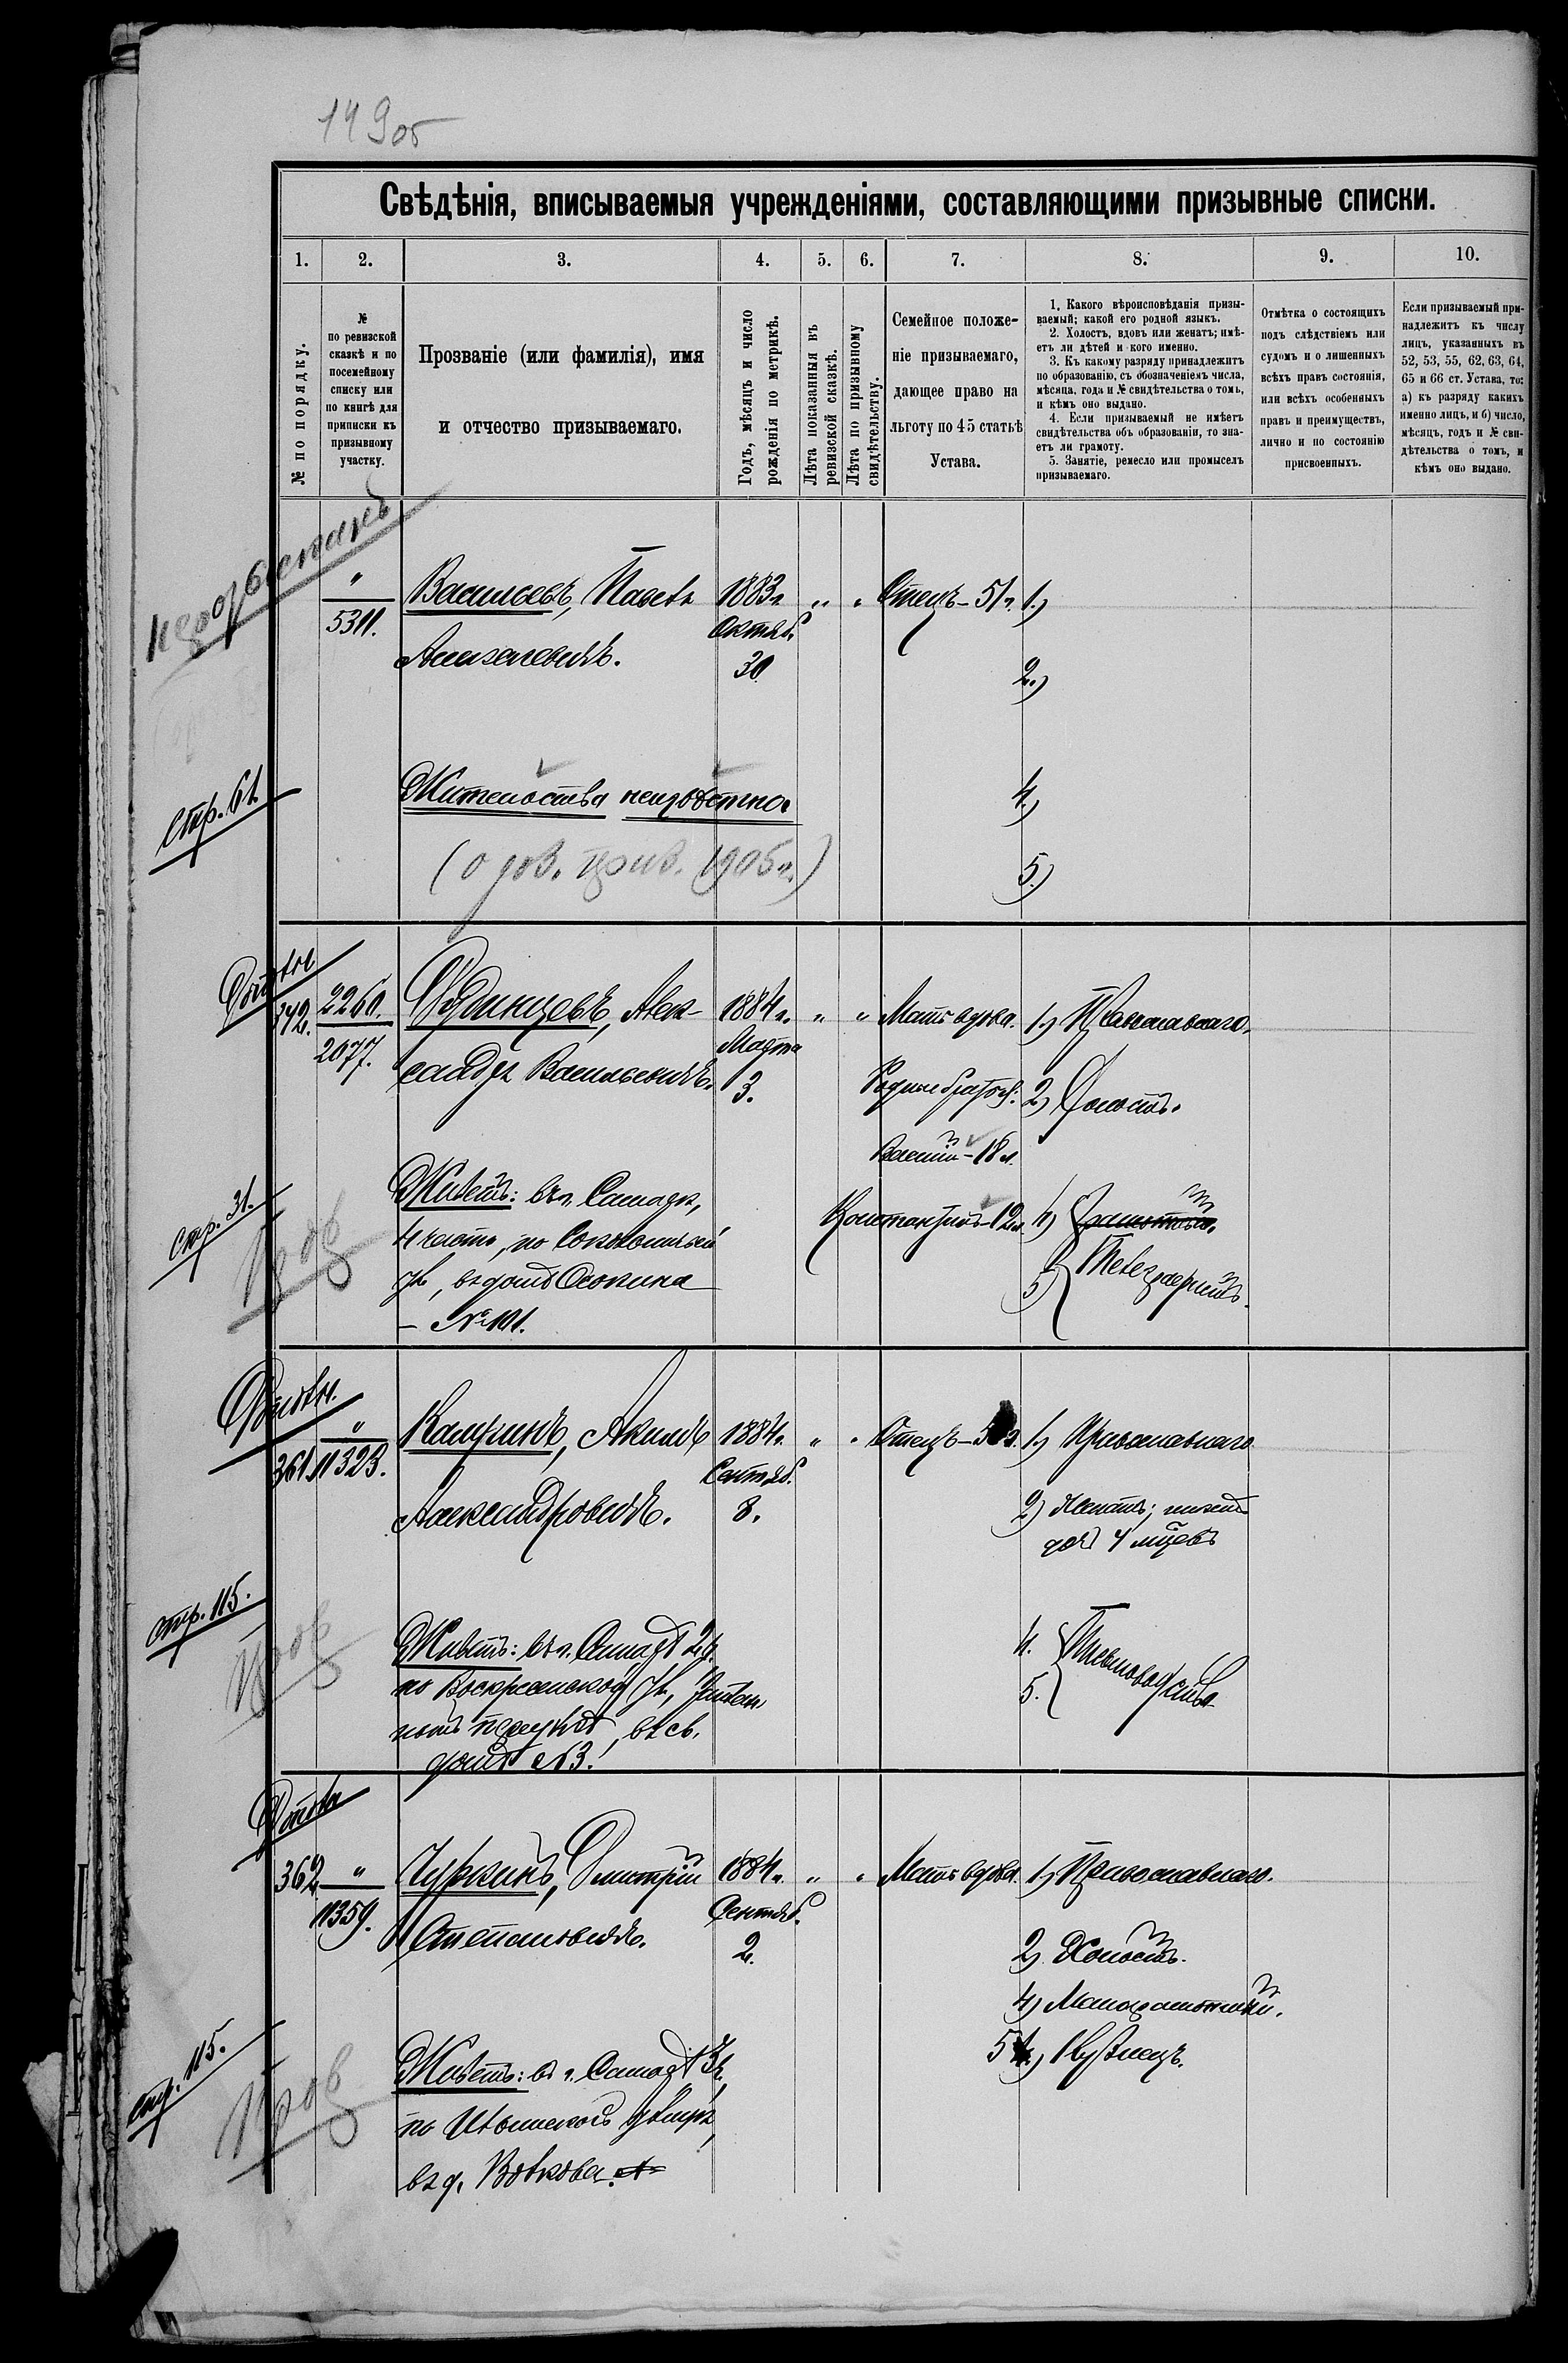 149об
Свѣдѣнія, вписываемыя учрежденіями, составляющими призывные списки.
1. 2. 3. 4. 5. 6. 7. 8. 9. 10.
№ по порядку.
№
по ревизской
сказкѣ и по
посемейному
списку или
по книгѣ для
приписки къ
призывному
участку.
Прозваніе (или фамилія), имя
и отчество призываемаго.
Годъ, мѣсяцъ и число
рожденія по метрикѣ.
Лѣта показанныя въ
ревизской сказкѣ.
Лѣта по призывному
свидѣтельству.
Семейное положе-
ніе призываемаго,
дающее право на
льготу по 45 статьѣ
Устава.
1. Какого вѣроисповѣданія призы-
ваемый; какой его родной языкъ.
2. Холостъ, вдовъ или женатъ; имѣ-
етъ ли дѣтей и кого именно.
3. Къ какому разряду принадлежитъ
по образованію, съ обозначеніемъ числа,
мѣсяца, года и № свидѣтельства о томъ,
и кѣмъ оно выдано.
4. Если призываемый не имѣетъ
свидѣтельства объ образованіи, то зна-
етъ ли грамоту.
5. Занятіе, ремесло или промыселъ
призываемаго.
Отмѣтка о состоящихъ
подъ слѣдствіемъ или
судомъ и о лишенныхъ
всѣхъ правъ состоянія,
или всѣхъ особенныхъ
правъ и преимуществъ,
лично и по состоянію
присвоенныхъ.
Если призываемый при-
надлежитъ къ числу
лицъ, указанныхъ въ
52, 53, 55, 62, 63, 64,
65 и 66 ст. Устава, то:
а) къ разряду какихъ
именно лицъ, и б) число,
мѣсяцъ, годъ и № сви-
дѣтельства о томъ, и
кѣмъ оно выдано.
" Васильевъ, Павелъ 1883г. " " Отецъ-51г. 1.)
5311. Октяб.
Алексѣевичъ. 30 2.)
Стр. 61.
Жительства неизвѣстно. 4.)
(о 1905г.) 5.)
342. 2260. Рудинцевъ, Алек- 1884г. " " Мать вдова. 1.) Православнаго.
2077. Марта
сандръ Васильевичъ. 3. Родные братья: 2.) Холостъ.
Василій-18л.
Стр. 31. Живетъ: въ г. Самарѣ, Константинъ-12л. 4)
4 часть, по
ул., въ домѣ Осокина 5)
- №101.
" Камринъ, Акимъ 1884г. " " Отецъ- 1.) Православнаго
361. 11323. Сентяб.
Александровичъ. 8. 2) Женатъ;
4 мѣсцевъ
стр. 115. Живетъ: въ г. Самарѣ 2ч. 4.
по Воскресенской ул., 5.
въ св.
домѣ №3.
362 " Чуркинъ, Дмитрій 1884г. " " Мать вдова. 1) Православнаго.
11359. Сентяб.
Степановичъ. 2. 2) Холостъ.
4) Малограмотный.
стр. 115. Живетъ: въ г. Самарѣ 3ч. 5) Кузнецъ.
по Ильинской улицѣ,
въ д. Волкова.